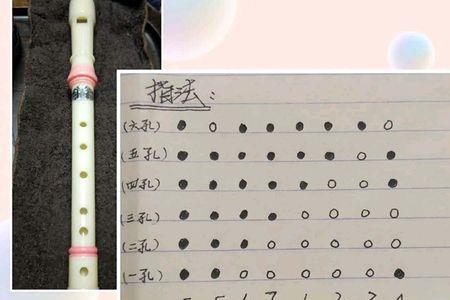 指法：
(六孔)
(五孔)
(四孔)
(三孔)
(二孔)
(一孔)